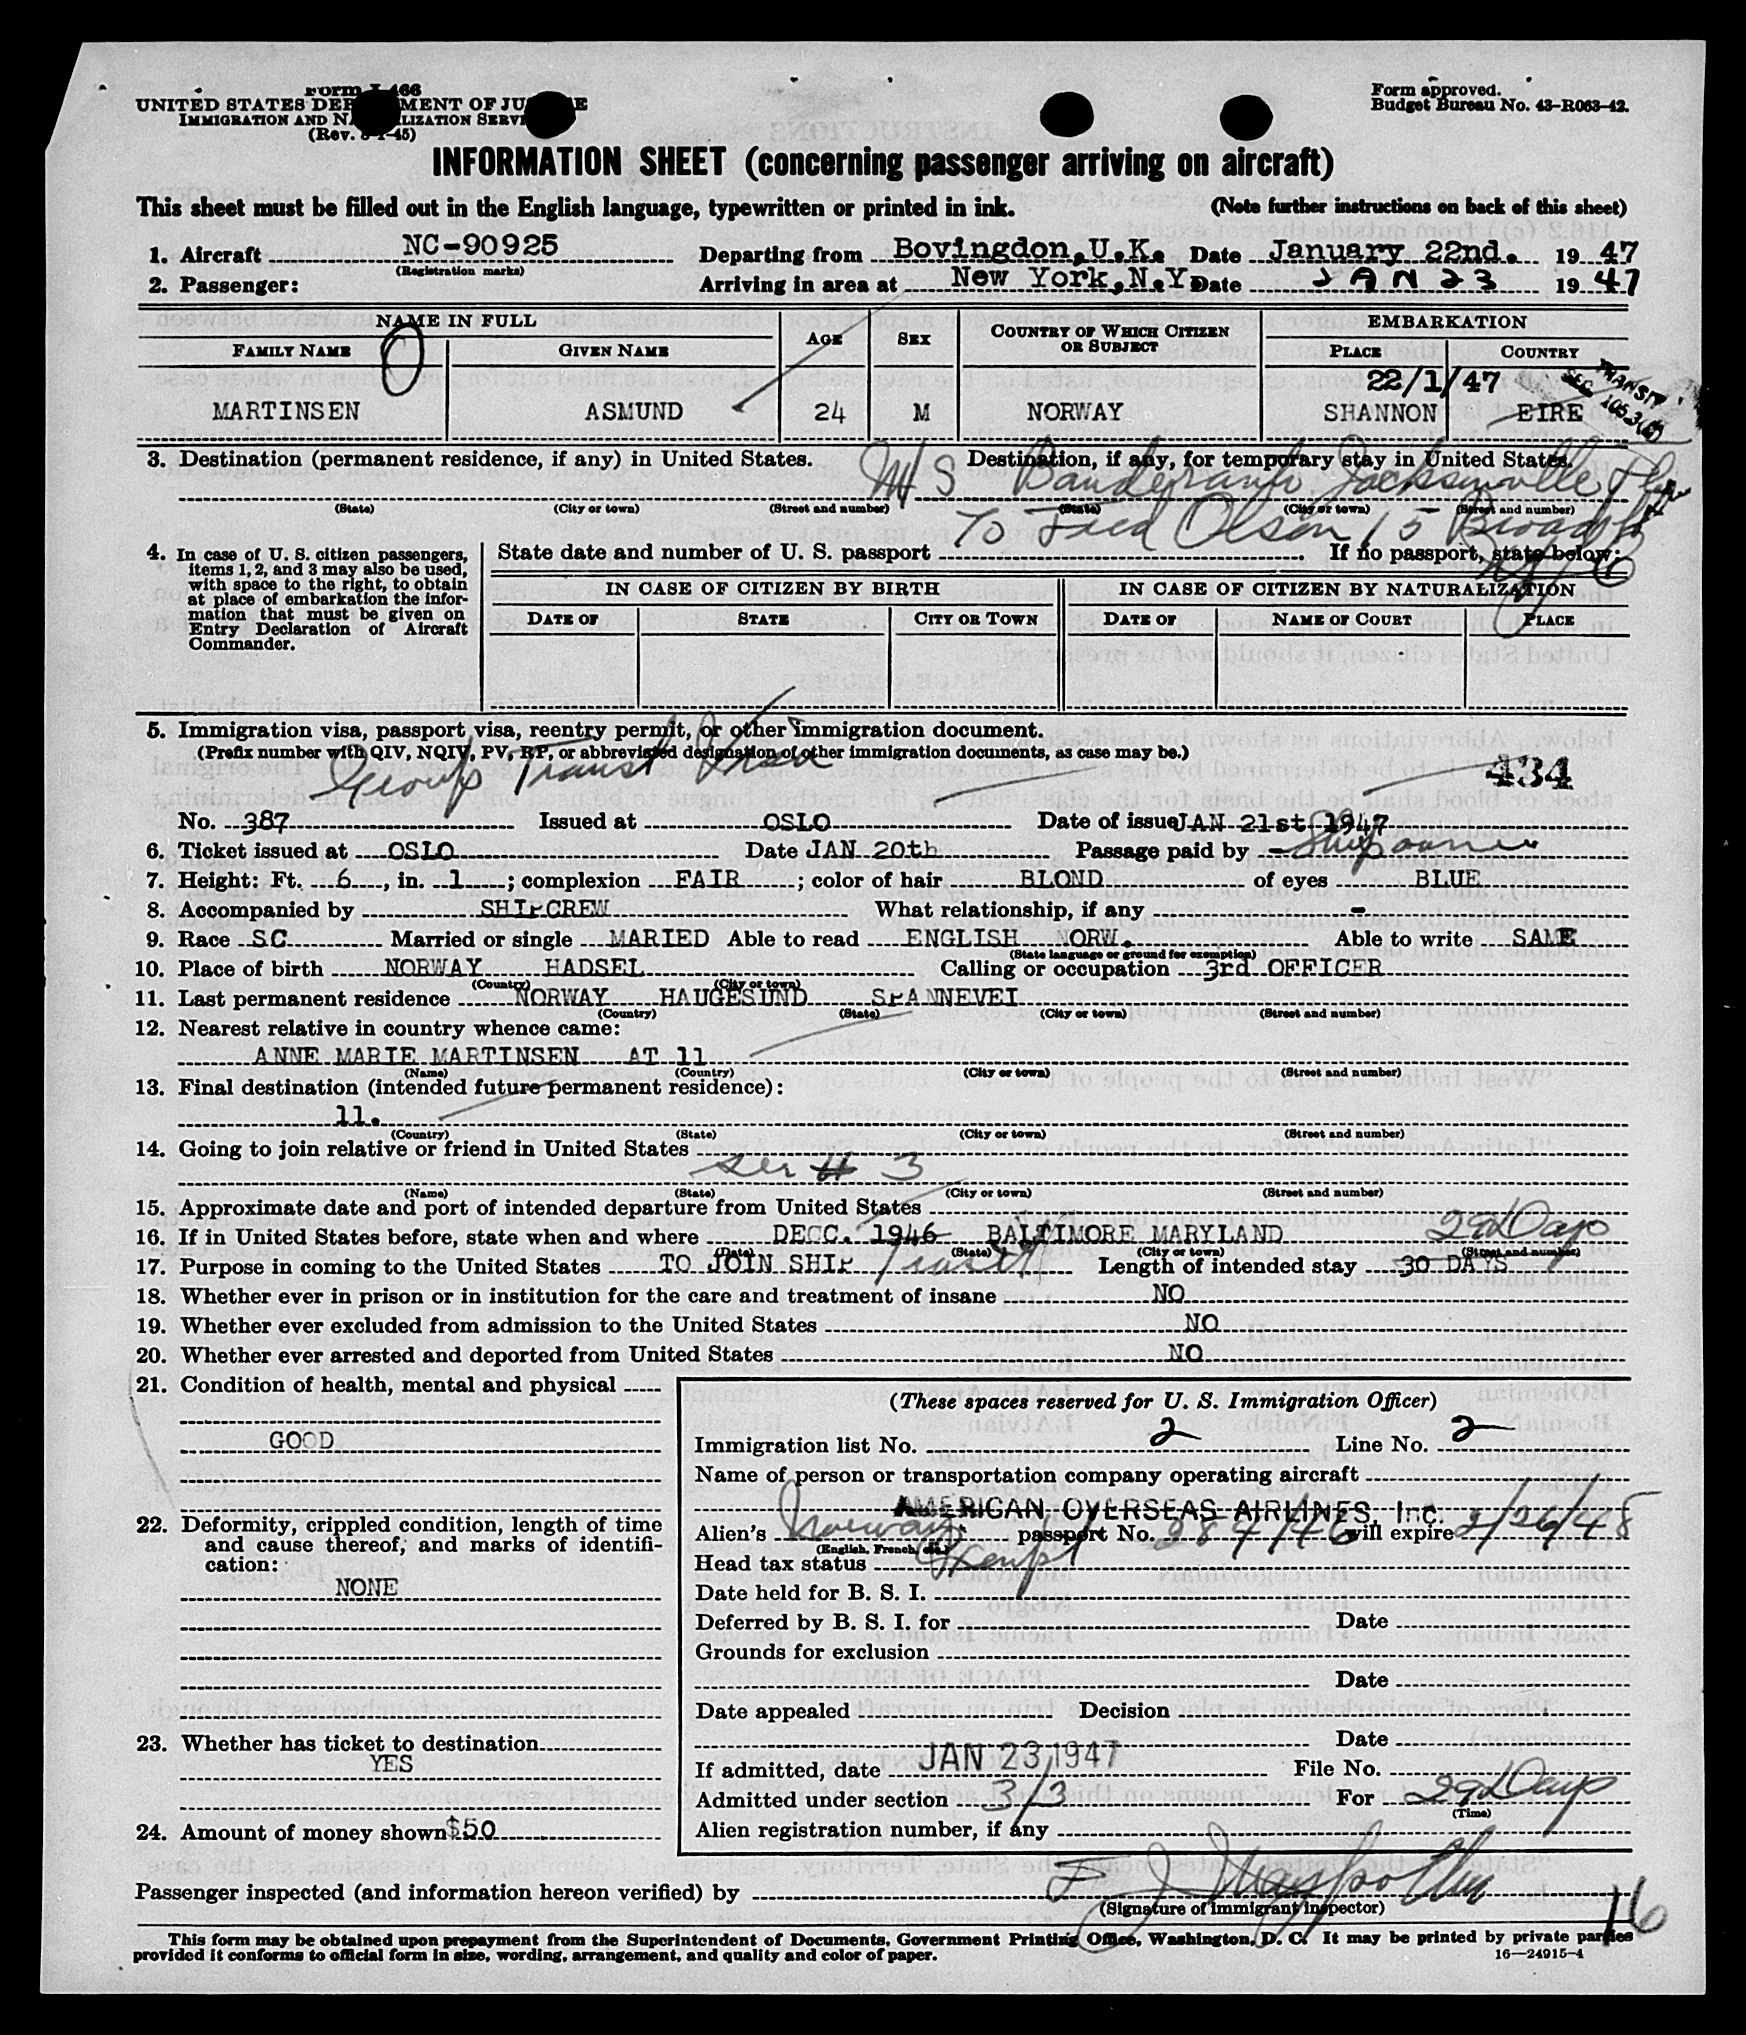 Form I-466
UNITED STATES DEPARTMENT OF JUSTICE
IMMIGRATION AND NATURALIZATION SERVICE
(Rev. 8-1-45)
Form approved.
Budget Bureau No. 43-R063-42.
INFORMATION SHEET (concerning passenger arriving on aircraft)
This sheet must be filled out in the English language, typewritten or printed in ink. (Note further instructions on back of this sheet)
1. Aircraft NC-90925 Departing from Bovingdon,U.K. Date January 22nd. 19 47
(Registration marks)
2. Passenger: Arriving in area at New York,N.Y. Date JAN 23 19 47
NAME IN FULL AGE SEX COUNTRY OF WHICH CITIZEN OR SUBJECT EMBARKATION
FAMILY NAME GIVEN NAME PLACE COUNTRY
22/1/47
TRANSIT
SEC 105.3(b)
MARTINSEN ASMUND 24 M NORWAY SHANNON EIRE
3. Destination (permanent residence, if any) in United States. Destination, if any, for temporary stay in United States.
M S Jacksonville Fla
(State) (City or town) (Street and number) (State) (City or town) (Street and number)
To Fred Olson 15 Broad St
N Y C
4. In case of U. S. citizen passengers, items 1, 2, and 3 may also be used, with space to the right, to obtain at place of embarkation the information that must be given on Entry Declaration of Aircraft Commander.
State date and number of U. S. passport If no passport, state below:
IN CASE OF CITIZEN BY BIRTH IN CASE OF CITIZEN BY NATURALIZATION
DATE OF STATE CITY OR TOWN DATE OF NAME OF COURT PLACE
5. Immigration visa, passport visa, reentry permit, or other immigration document.
(Prefix number with QIV, NQIV, PV, RP, or abbreviated designation of other immigration documents, as case may be.)
Group Transit Visa 434
No. 387 Issued at OSLO Date of issue JAN 21st 1947
6. Ticket issued at OSLO Date JAN 20th Passage paid by Shipowner
7. Height: Ft. 6, in. 1; complexion FAIR; color of hair BLOND of eyes BLUE
8. Accompanied by SHIPCREW What relationship, if any -
9. Race SC Married or single MARIED Able to read ENGLISH NORW. Able to write SAME
(State language or ground for exemption)
10. Place of birth NORWAY HADSEL Calling or occupation 3rd OFFICER
(Country) (City or town)
11. Last permanent residence NORWAY HAUGESUND SPANNEVEI
(Country) (State) (City or town) (Street and number)
12. Nearest relative in country whence came:
ANNE MARIE MARTINSEN AT 11
(Name) (Country) (City or town) (Street and number)
13. Final destination (intended future permanent residence):
11.
(Country) (State) (City or town) (Street and number)
14. Going to join relative or friend in United States
see # 3
(Name) (State) (City or town) (Street and number)
15. Approximate date and port of intended departure from United States
16. If in United States before, state when and where DECC. 1946 BALTIMORE MARYLAND 29 Days
(Date) (State) (City or town) (Street and number)
17. Purpose in coming to the United States TO JOIN SHIP Transit Length of intended stay 30 DAYS
18. Whether ever in prison or in institution for the care and treatment of insane NO
19. Whether ever excluded from admission to the United States NO
20. Whether ever arrested and deported from United States NO
21. Condition of health, mental and physical
GOOD
22. Deformity, crippled condition, length of time and cause thereof, and marks of identification:
NONE
23. Whether has ticket to destination
YES
24. Amount of money shown $50
(These spaces reserved for U. S. Immigration Officer)
Immigration list No. 2 Line No. 2
Name of person or transportation company operating aircraft
AMERICAN OVERSEAS AIRLINES, Inc.
Alien's Norway passport No. 289/46 will expire 2/26/48
(English, French, etc.)
Head tax status Exempt
Date held for B. S. I.
Deferred by B. S. I. for Date
Grounds for exclusion
Date
Date appealed Decision
Date
If admitted, date JAN 23 1947 File No.
Admitted under section 3/3 For 29 Days
(Time)
Alien registration number, if any
Passenger inspected (and information hereon verified) by
(Signature of Immigrant Inspector)
16
This form may be obtained upon prepayment from the Superintendent of Documents, Government Printing Office, Washington, D. C. It may be printed by private parties
provided it conforms to official form in size, wording, arrangement, and quality and color of paper.
16—24915-4